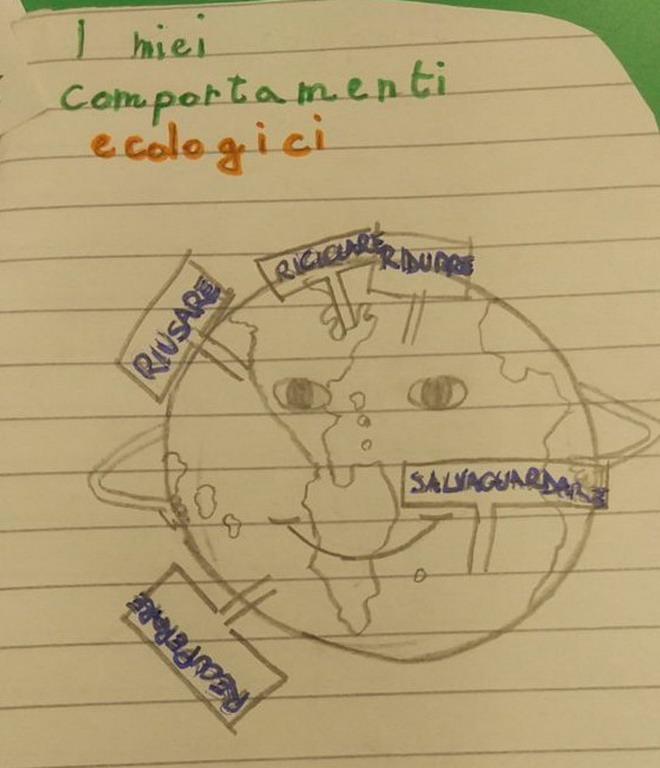 I miei
comportamenti
ecologici
RICICLARE
RIDURRE
RIUSARE
SALVAGUARDARE
RECUPERARE